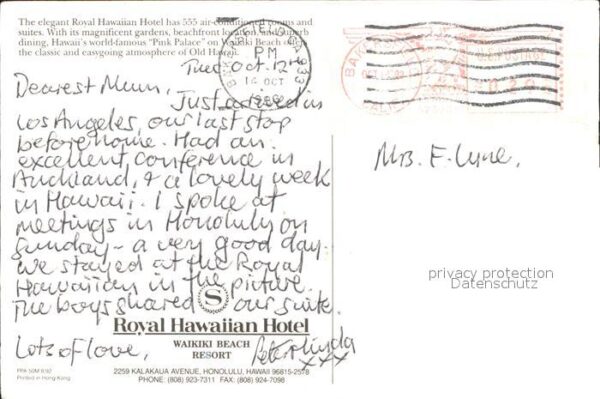 The elegant Royal Hawaiian Hotel has 555 air-conditioned rooms and
suites. With its magnificent gardens, beachfront location, and superb
dining, Hawaii's world-famous "Pink Palace" on Waikiki Beach offers
the classic and easygoing atmosphere of Old Hawaii.
Tues Oct. 12
Dearest Mum,
Just arrived in
Los Angeles, our last stop
before home. Had an
excellent conference in
Auckland, & a lovely week
in Hawaii. I spoke at
meetings in Honolulu on
Sunday - a very good day.
We stayed at the Royal
Hawaiian in the picture.
The boys shared our suite.
S
Royal Hawaiian Hotel
WAIKIKI BEACH
RESORT
Lots of love,
Peter & Linda
xxx
2259 KALAKAUA AVENUE, HONOLULU, HAWAII 96815-2578
PHONE: (808) 923-7311 FAX: (808) 924-7098
PPA 50M 6/92
Printed in Hong Kong
PM
14 OCT
Mrs. F. Lyne,
privacy protection
Datenschutz